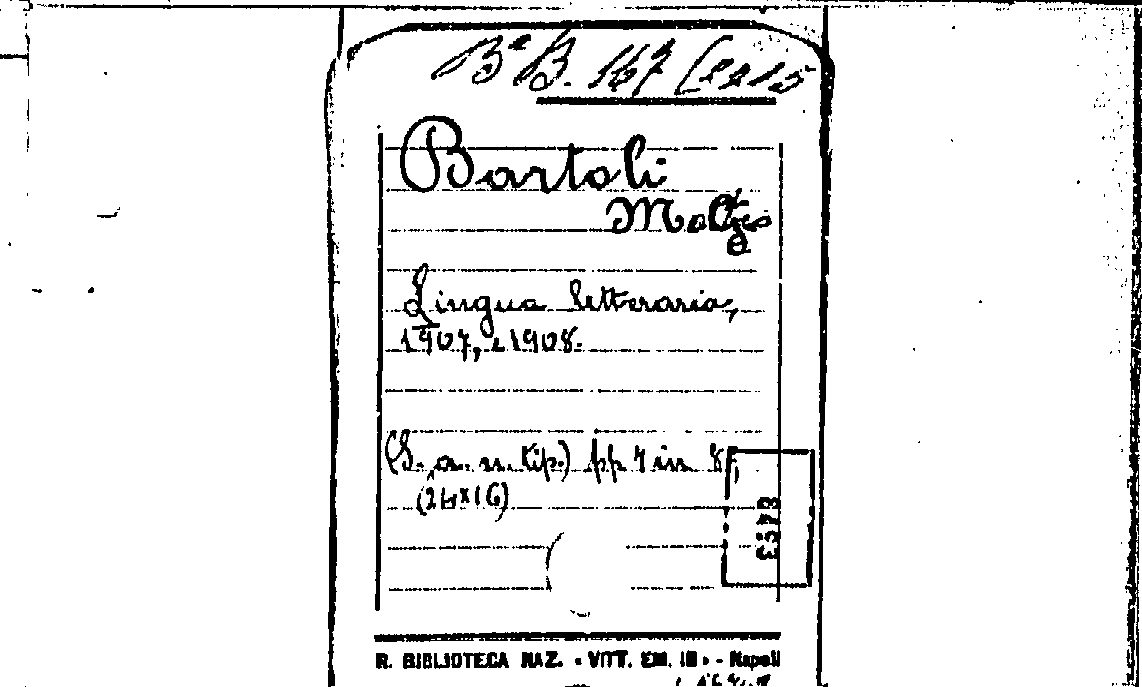 Bª B. 167 (
Bartoli
Matteo
Lingua letteraria,
1907, e 1908.
(S. a. n. tip.) pp 4 in 8º,
(24x16)
R. BIBLIOTECA NAZ. « VITT. EM. III » - Napoli